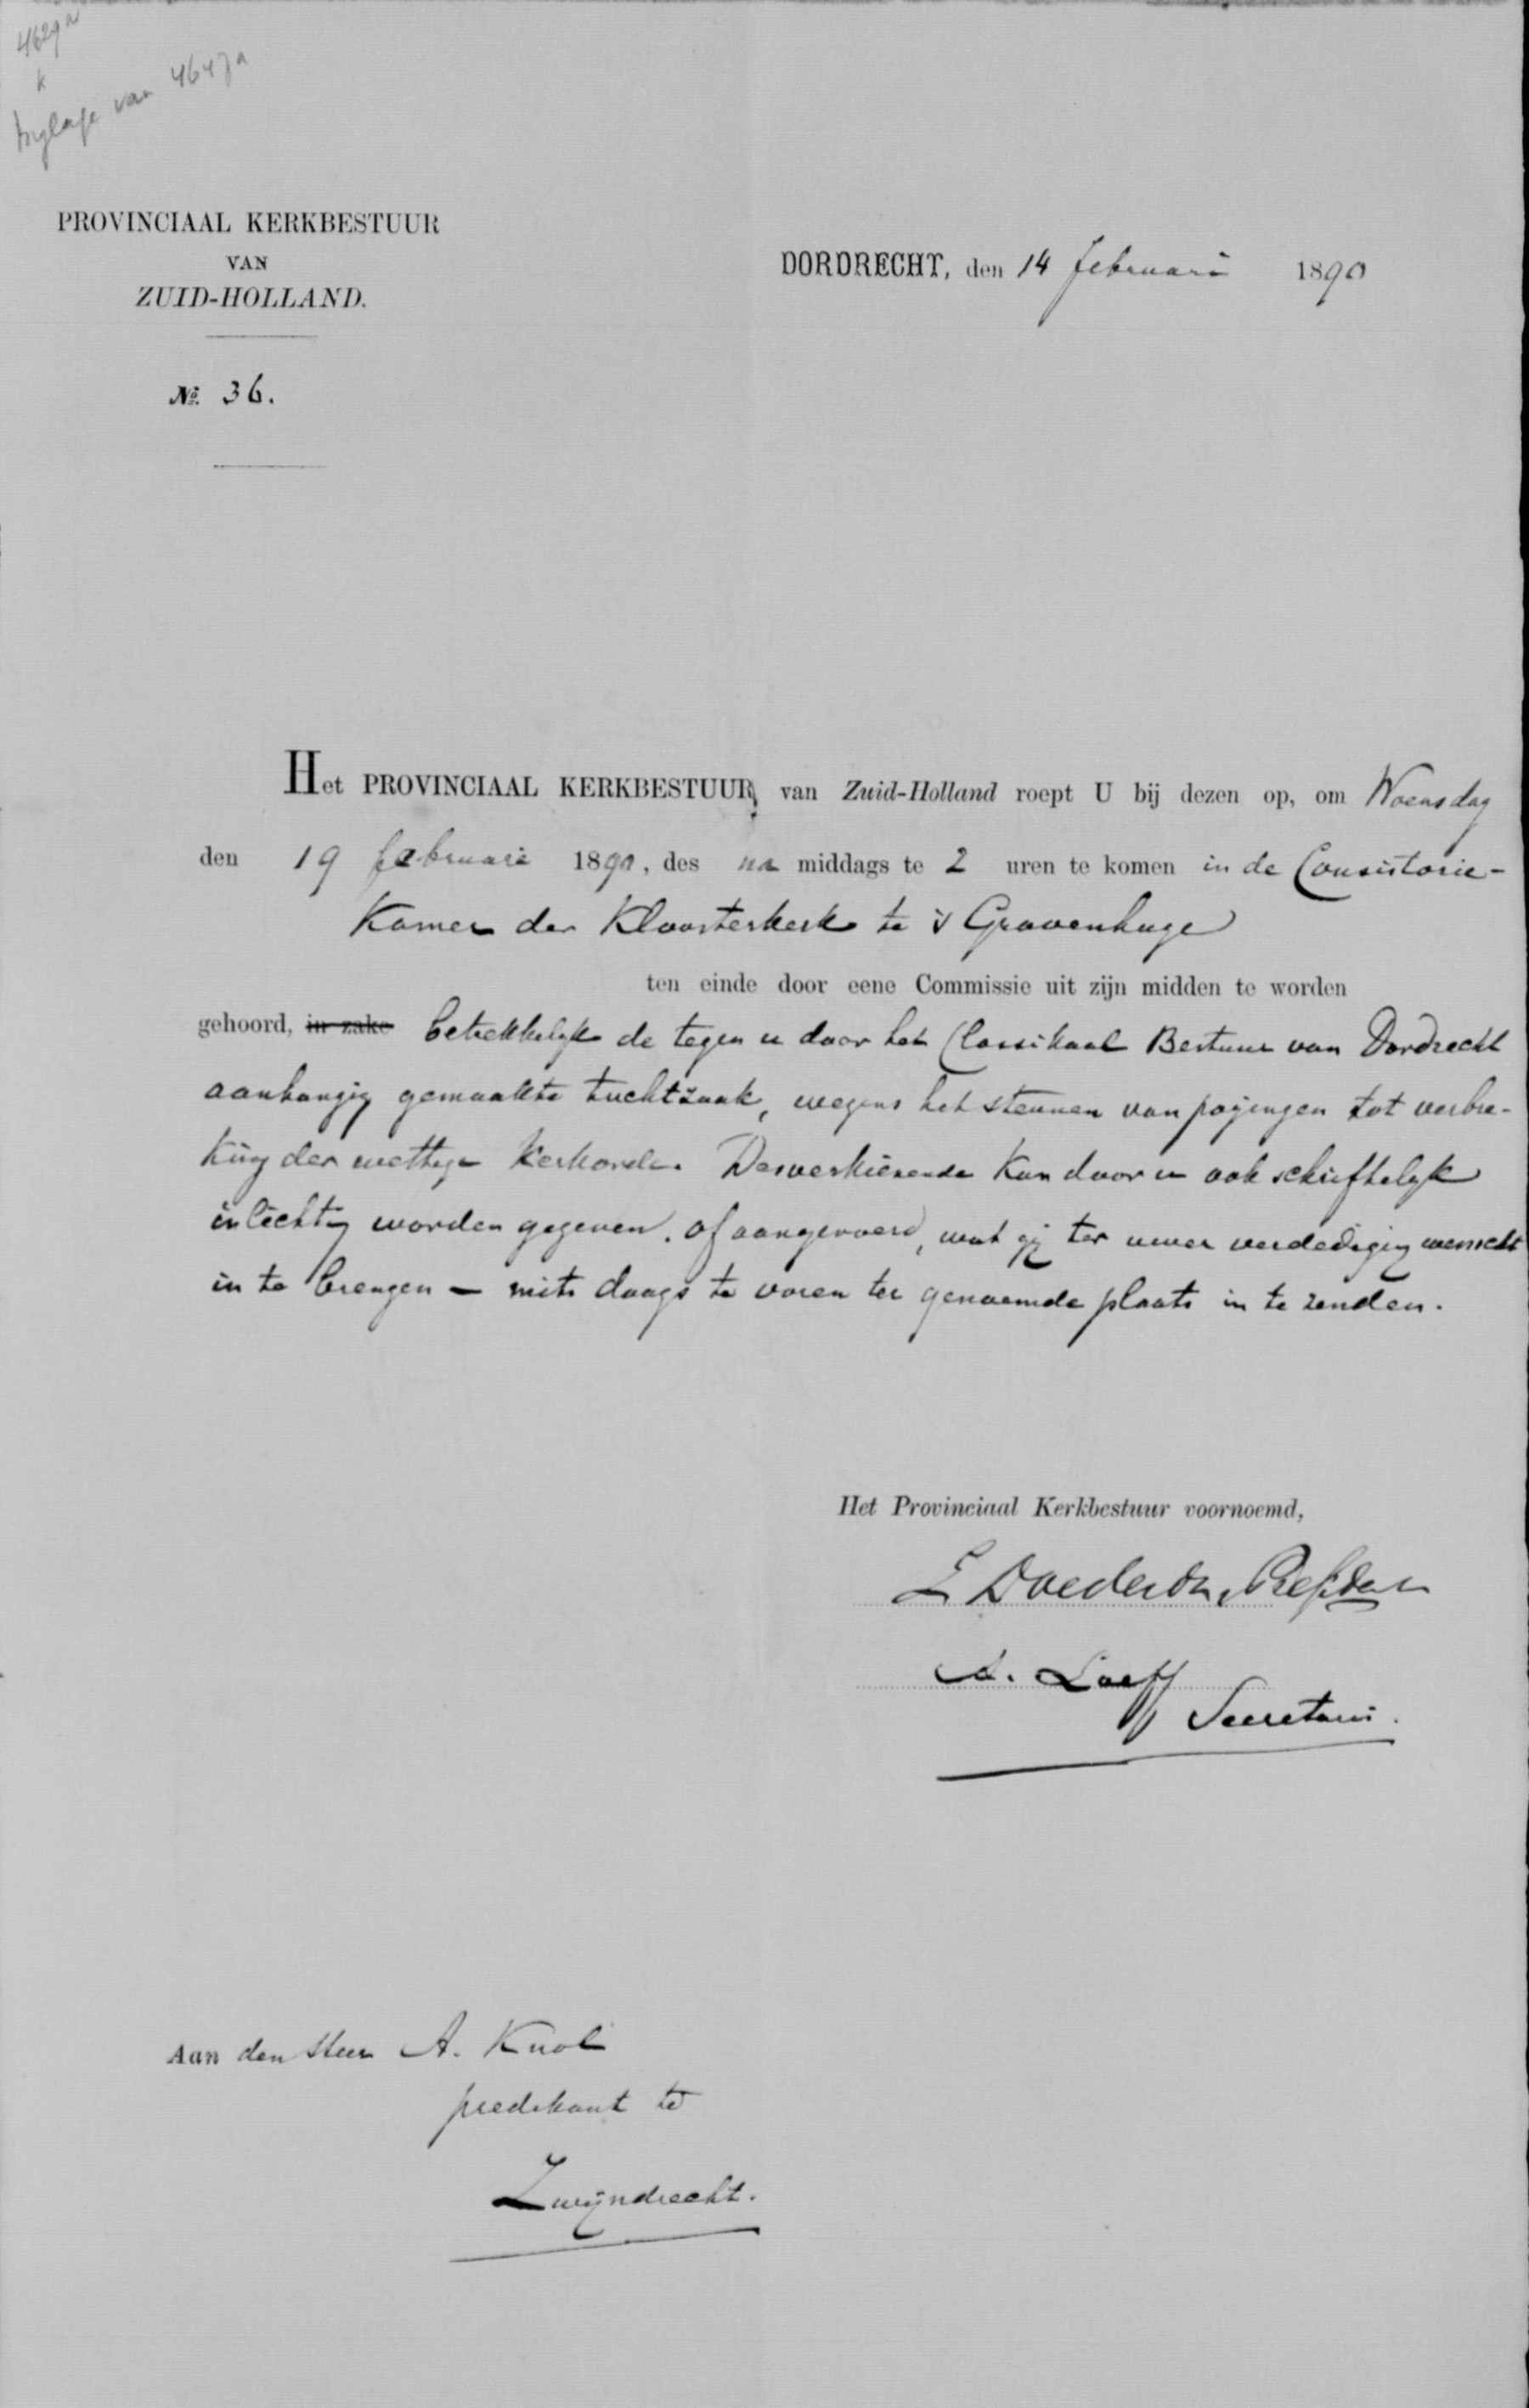 4629a
k
bylage van 4647a
PROVINCIAAL KERKBESTUUR
VAN
ZUID-HOLLAND.
DORDRECHT, den 14 februari 1890
No. 36.
Het PROVINCIAAL KERKBESTUUR van Zuid-Holland roept U bij dezen op, om Woensdag
den 19 februari 1890, des na middags te 2 uren te komen in de Consistorie-
Kamer der Kloosterkerk te 's Gravenhage
ten einde door eene Commissie uit zijn midden te worden
gehoord, in zake betrekkelijk de tegen u door het Classikaal Bestuur van Dordrecht
aanhangig gemaakte tuchtzaak, wegens het steunen van pogingen tot verbre-
king der wettige Kerkorde. Desverkiezende kan door u ook schriftelijk
inlichting worden gegeven, of aangevoerd, wat gij ter uwer verdediging wenscht
in te brengen — mits daags te voren ter genoemde plaats in te zenden.
Het Provinciaal Kerkbestuur voornoemd,
President
A. Loeff
Secretaris.
Aan den Heer A. Knol
predikant te
Zwijndrecht.